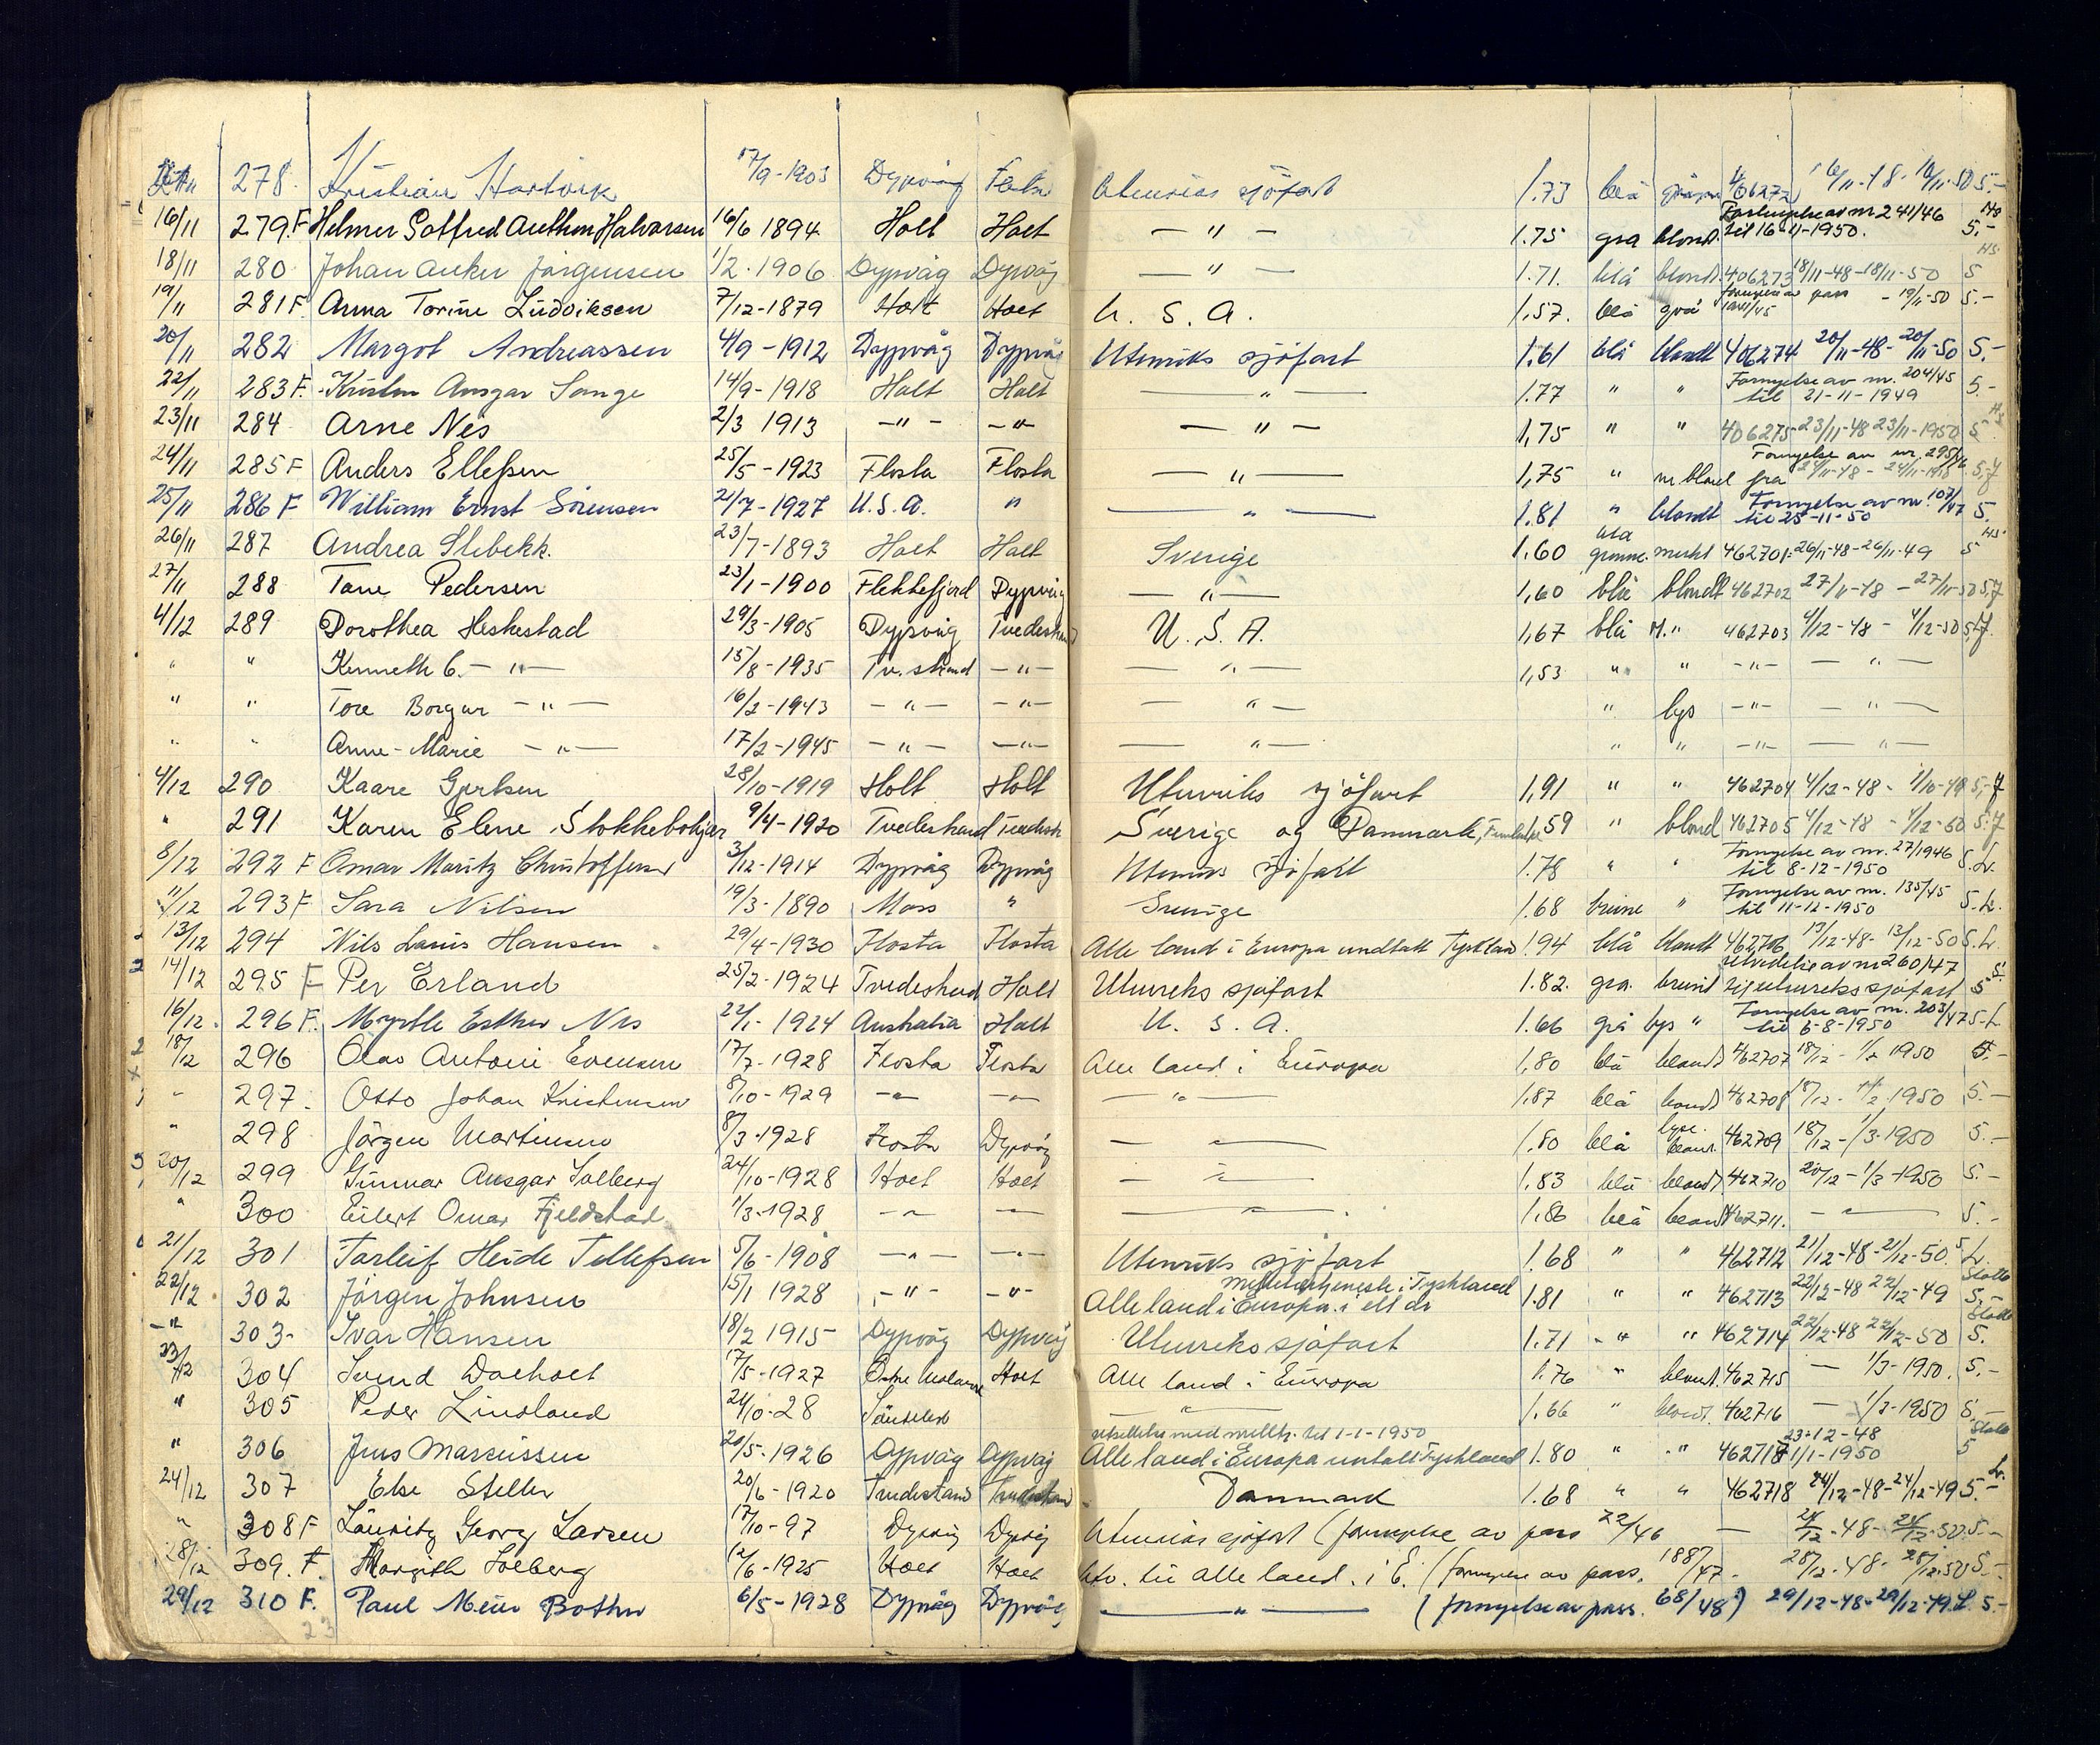 278. Kristian Hartvik 17/9-1903 Dypvåg Flosta Utenriks sjöfart 1.73 blå 406272 16/11-48-16/11-50 5.-
16/11 279.F Helmer Gotfred Anthon Halvorsen 16/6 1894 Holt Holt — " — 1.75 grå blond. Forlengelse av nr 241/46 til 16-11-1950. 5,-
18/11 280 Johan Anker Jörgensen 1/2-1906 Dypvåg Dypvåg — " — 1.71. blå blondt 406273 18/11-48-18/11-50 5 HS
19/11 281 F. Anna Torine Ludviksen 7/12-1879 Holt Holt U. S. A. 1,57. blå grå fornyelse av pass - 19/11-50 5.-
20/11 282 Margot Andreassen 4/9-1912 Dypvåg Dypvåg Utenriks sjöfart 1.61 blå blondt 406274 20/11-48-20/11-50 5,-
22/11 283 F. Kristen Ansgar Songe 14/9-1918 Holt Holt — " — 1.77 " " Fornyelse av nr. 204/45 til 21-11-1949 5.-
23/11 284 Arne Nes 2/3 1913 —"— —"— — " — 1,75 " " 406275 23/11-48 23/11-1950 5 HS
24/11 285 F Anders Ellefsen 25/5-1923 Flosta Flosta — " — 1,75 " m.blond Fornyelse av nr. 295/46 fra 24/11-48 - 24/11-1950 5,-
25/11 286 F William Ernst Sörensen 21/7-1927 U.S.A. " — " — 1.81 " blondt Fornyelse av nr. 107/47 til 25-11-50 5.
26/11 287 Andrea Slebekk. 23/7-1893 Holt Holt Sverige 1,60 blå grønne. mørkt 462701 26/11-48-26/11-49 5 HS
27/11 288 Tone Pedersen 23/1-1900 Flekkefjord Dypvåg — " — 1,60 blå blondt 462702 27/11-48 - 27/11-50 5,-
4/12 289 Dorothea Heskestad 29/3-1905 Dypvåg Tvedestrand U. S. A. 1,67 blå M." 462703 4/12-48 - 4/12-50 5,-
" " Kenneth C. —"— 15/8-1935 Tv.strand —"— — " — 1,53 " " —"— — " —
" " Tore Borgar —"— 16/2-1943 —"— —"— — " — " lys —"— — " —
" " Anne-Marie —"— 17/2-1945 —"— —"— — " — " " —"— — " —
4/12 290 Kaare Gjertsen 28/10-1919 Holt Holt Utenriks sjöfart 1,91 " " 462704 4/12-48 - 1/10-49 5,-
" 291 Karen Elene Stokkebokjær 9/4-1920 Tvedestrand Tvedestr Sverige og Danmark, 1,59 " blond 462705 4/12-48 - 4/12-50 5.
8/12 292 F Omar Moritz Christoffersen 3/12-1914 Dypvåg Dypvåg Utenriks sjöfart 1.78 " " Fornyelse av nr. 27/1946 til 8-12-1950 5.L.
11/12 293 F Sara Nilsen 19/3-1890 Moss " Sverige 1.68 brune " Fornyelse av nr. 135/45 til 11-12-1950 5.L.
13/12 294 Nils Lauris Hansen 29/4-1930 Flosta Flosta Alle land i Europa undtatt Tyskland 1.94 blå blondt 462706 13/12-48-13/12-50 5.L.
14/12 295 F Per Erland 25/2-1924 Tvedestrand Holt Utenriks sjöfart 1.82. grå. brunt utvidelse av nr 260/47 til utenriks sjöfart 5
16/12. 296 F. Myrtle Esther Nes 22/1-1924 Australia Holt U. S. A. 1.66 grå lys " Fornyelse av nr. 203/47 til 6-8-1950 5.L
18/12 296 Olav Antoni Evensen 17/7-1928 Flosta Flosta Alle land i Europa 1,80 blå blondt 462707 18/12 - 1/2 1950 5.-
" 297. Otto Johan Kristensen 8/10-1929 —"— —"— — " — 1,87 blå blondt 462708 18/12 - 1/2 1950 5.-
" 298 Jörgen Mortensen 8/3-1928 Flosta Dypvåg — " — 1.80 blå lyse blond. 462709 18/12 - 1/3-1950 5.-
20/12 299 Gunnar Ansgar Solberg 24/10-1928 Holt Holt — " — 1,83 blå blondt 462710 20/12 - 1/3-1950 5.-
" 300 Eilert Omar Fjeldstad 1/3-1928 —"— —"— — " — 1,86 blå blondt 462711. — " — 5.-
21/12 301 Torleif Heide Tellefsen 5/6-1908 —"— —"— Utenriks sjöfart 1.68 " " 462712 21/12-48-21/12-50. 5 L.
22/12. 302 Jörgen Johnsen 15/1 1928 —"— —"— Alle land i Europa i 1.81 " " 462713 22/12-48 22/12-49 5,-
—"— 303- Ivar Hansen 18/2 1915 Dypvåg Dypvåg Utenriks sjöfart 1.71 —"— " 462714 22/12-48 22/12-50 5.
23/12 304 Svend Dalholt 17/5-1927 Holt Alle land i Europa 1.76 " blondt. 462715 — 1/3-1950. 5.-
" 305 Peder Lindland 24/10-28 — " — 1.66 " blondt. 462716 — 1/3-1950 5.-
" 306 Jens Marcussen 20/5-1926 Dypvåg Dypvåg utsettelse med til 1-1-1950 Alle land i Europa untatt Tyskland 1.80 " —"— 462717 23-12-48 1/1-1950 5
24/12 307 Else Steller 20/6-1920 Tvedestrand Tvedestrand Danmark 1.68 " " 462718 24/12-48-24/12-49 5.-
" 308 F Lauritz Georg Larsen 17/10-97 Dypvåg Dypvåg Utenriks sjöfart (fornyelse av pass 22/46 — 24/12-48-24/12-50 5.-
28/12 309. F. Margith Solberg 12/6-1925 Holt Holt Utv. til alle land. i E. (fornyelse av pass. 188/47 - 28/12-48-28/12-50 5.-
29/12 310 F. Paul Meier Bothn 6/5-1928 Dypvåg Dypvåg — " — (fornyelse av pass. 68/48) 29/12-48-29/12-49. L. 5.-
23